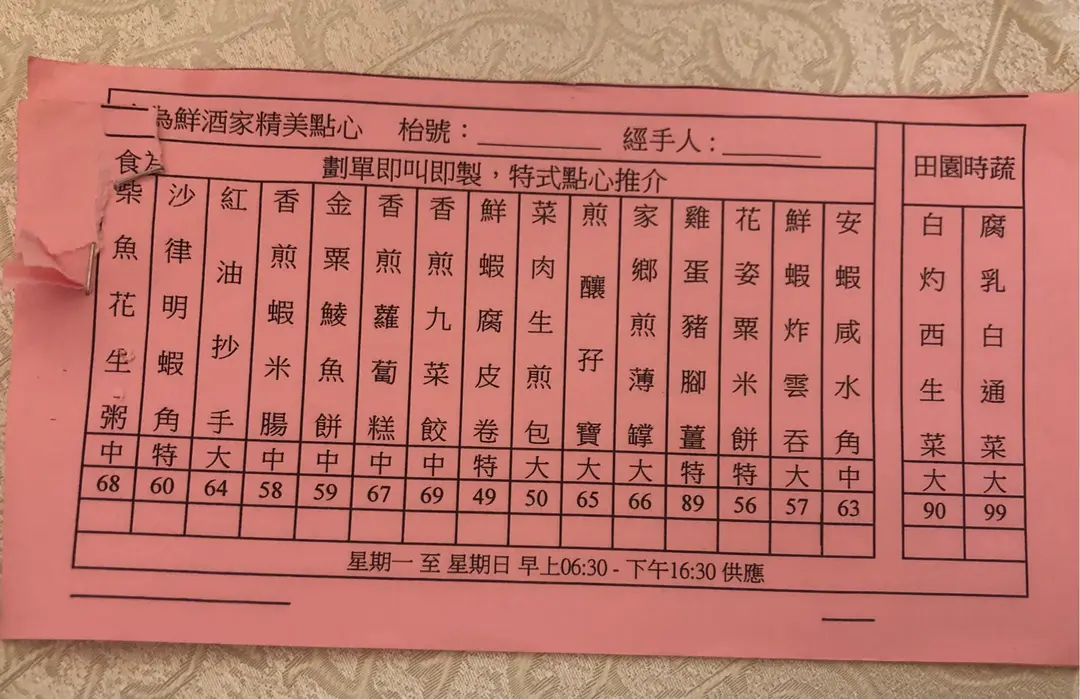 為鮮酒家精美點心 枱號：________ 經手人：________
食為
劃單即叫即製，特式點心推介
田園時蔬
柴魚花生粥
沙律明蝦角
紅油抄手
香煎蝦米腸
金粟鯪魚餅
香煎蘿蔔糕
香煎九菜餃
鮮蝦腐皮卷
菜肉生煎包
煎釀孖寶
家鄉煎薄罉
雞蛋豬腳薑
花姿粟米餅
鮮蝦炸雲吞
安蝦咸水角
白灼西生菜
腐乳白通菜
中 特 大 中 中 中 中 特 大 大 大 特 特 大 中 大 大
68 60 64 58 59 67 69 49 50 65 66 89 56 57 63 90 99
星期一 至 星期日 早上06:30 - 下午16:30 供應